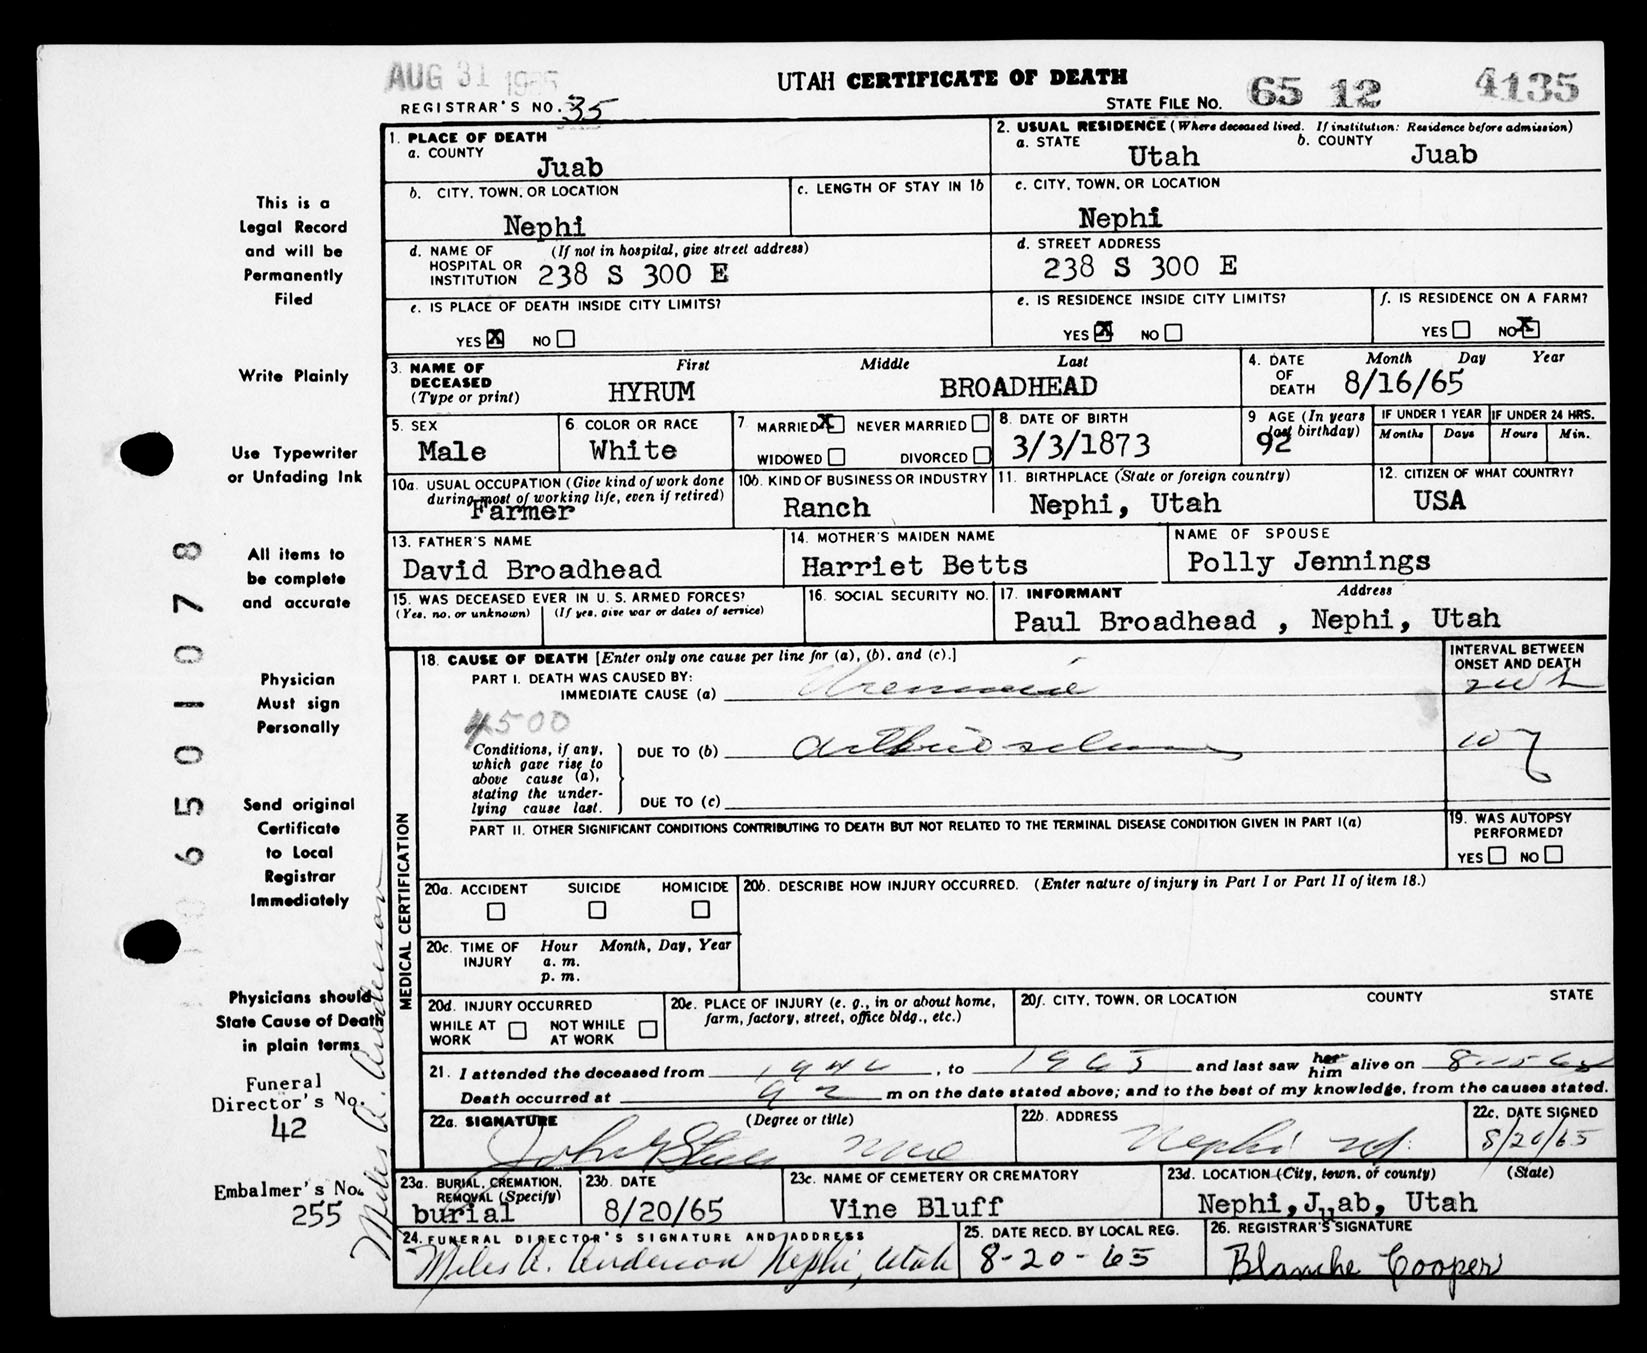 AUG 31 1965
UTAH CERTIFICATE OF DEATH
REGISTRAR'S NO. 35
STATE FILE NO. 65 12 4135
1. PLACE OF DEATH
a. COUNTY
Juab
2. USUAL RESIDENCE (Where deceased lived. If institution: Residence before admission)
a. STATE Utah b. COUNTY Juab
b. CITY, TOWN, OR LOCATION
Nephi
c. LENGTH OF STAY IN 1b
c. CITY, TOWN, OR LOCATION
Nephi
d. NAME OF HOSPITAL OR INSTITUTION (If not in hospital, give street address)
238 S 300 E
d. STREET ADDRESS
238 S 300 E
e. IS PLACE OF DEATH INSIDE CITY LIMITS?
YES X NO
e. IS RESIDENCE INSIDE CITY LIMITS?
YES X NO
f. IS RESIDENCE ON A FARM?
YES NO X
3. NAME OF DECEASED (Type or print)
First Middle Last
HYRUM BROADHEAD
4. DATE OF DEATH
Month Day Year
8/16/65
5. SEX
Male
6. COLOR OR RACE
White
7 MARRIED X NEVER MARRIED
WIDOWED DIVORCED
8. DATE OF BIRTH
3/3/1873
9 AGE (In years last birthday)
92
IF UNDER 1 YEAR
Months Days
IF UNDER 24 HRS.
Hours Min.
10a. USUAL OCCUPATION (Give kind of work done during most of working life, even if retired)
Farmer
10b. KIND OF BUSINESS OR INDUSTRY
Ranch
11. BIRTHPLACE (State or foreign country)
Nephi, Utah
12. CITIZEN OF WHAT COUNTRY?
USA
13. FATHER'S NAME
David Broadhead
14. MOTHER'S MAIDEN NAME
Harriet Betts
NAME OF SPOUSE
Polly Jennings
15. WAS DECEASED EVER IN U. S. ARMED FORCES?
(Yes, no, or unknown) (If yes, give war or dates of service)
16. SOCIAL SECURITY NO.
17. INFORMANT Address
Paul Broadhead , Nephi, Utah
MEDICAL CERTIFICATION
18. CAUSE OF DEATH [Enter only one cause per line for (a), (b), and (c).]
PART I. DEATH WAS CAUSED BY:
IMMEDIATE CAUSE (a)
INTERVAL BETWEEN ONSET AND DEATH
4500
Conditions, if any, which gave rise to above cause (a), stating the underlying cause last.
DUE TO (b)
10 y
DUE TO (c)
PART II. OTHER SIGNIFICANT CONDITIONS CONTRIBUTING TO DEATH BUT NOT RELATED TO THE TERMINAL DISEASE CONDITION GIVEN IN PART I(a)
19. WAS AUTOPSY PERFORMED?
YES NO
20a. ACCIDENT SUICIDE HOMICIDE
20b. DESCRIBE HOW INJURY OCCURRED. (Enter nature of injury in Part I or Part II of item 18.)
20c. TIME OF INJURY Hour Month, Day, Year
a. m.
p. m.
20d. INJURY OCCURRED
WHILE AT WORK NOT WHILE AT WORK
20e. PLACE OF INJURY (e. g., in or about home, farm, factory, street, office bldg., etc.)
20f. CITY, TOWN, OR LOCATION COUNTY STATE
21. I attended the deceased from 1946, to 1965 and last saw her him alive on 8-15-65
Death occurred at m on the date stated above; and to the best of my knowledge, from the causes stated.
22a. SIGNATURE (Degree or title)
John
22b. ADDRESS
Nephi
22c. DATE SIGNED
8/20/65
23a. BURIAL, CREMATION, REMOVAL (Specify)
burial
23b. DATE
8/20/65
23c. NAME OF CEMETERY OR CREMATORY
Vine Bluff
23d. LOCATION (City, town, or county) (State)
Nephi, Juab, Utah
24. FUNERAL DIRECTOR'S SIGNATURE AND ADDRESS
Miles A. Anderson Nephi, Utah
25. DATE RECD. BY LOCAL REG.
8-20-65
26. REGISTRAR'S SIGNATURE
Blanche Cooper
This is a
Legal Record
and will be
Permanently
Filed
Write Plainly
Use Typewriter
or Unfading Ink
All items to
be complete
and accurate
Physician
Must sign
Personally
Send original
Certificate
to Local
Registrar
Immediately
Physicians should
State Cause of Death
in plain terms
Funeral
Director's No.
42
Embalmer's No.
255
Miles A. Anderson
6501078